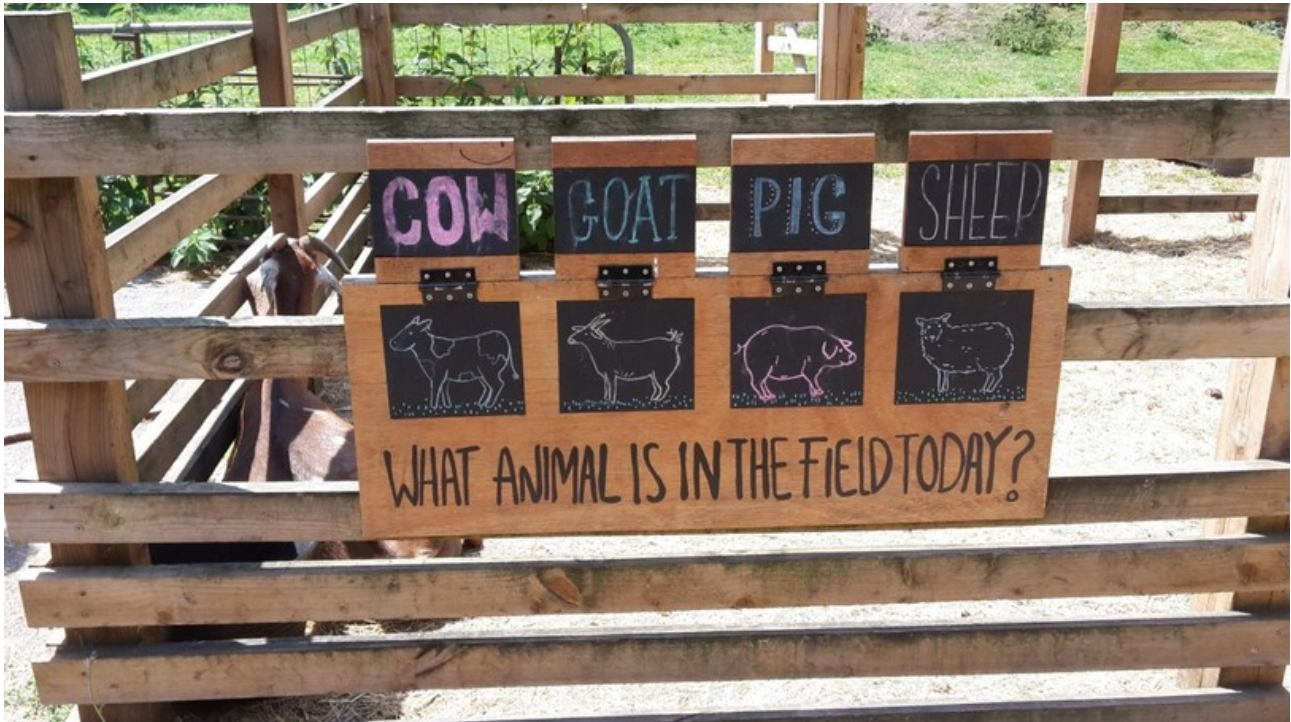 COW GOAT PIG SHEEP
WHAT ANIMAL IS IN THE FIELD TODAY?